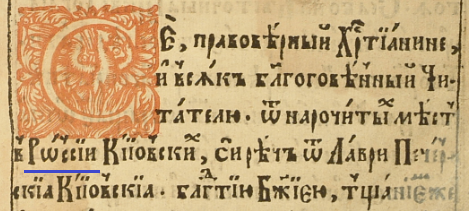 СЕ́, правовѣ́рный Хр҇тїа́нине,
и҆ всѧ́къ бл҃гоговѣ́нный Чи-
та́телю. Ѿ нарочи́тыⷯ мѣ́стъ
в Рѡ́ссїи Кї́евскиⷯ, си́рѣчъ ѿ Ла́ври Пече́р-
скїѧ Кї́евскїѧ. бл҃года́тїю Бж҃їею, тщанїеже